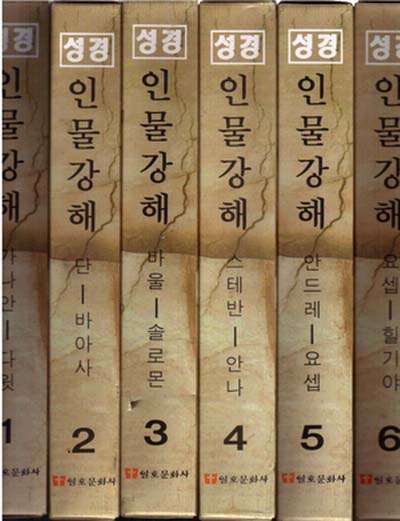 성경
인물강해
가나안—다윗
1
일호문화사
성경
인물강해
단—바아사
2
일호문화사
성경
인물강해
바울—솔로몬
3
일호문화사
성경
인물강해
스테반—안나
4
일호문화사
성경
인물강해
안드레—요셉
5
일호문화사
성경
인물강해
요셉—힐기야
6
일호문화사